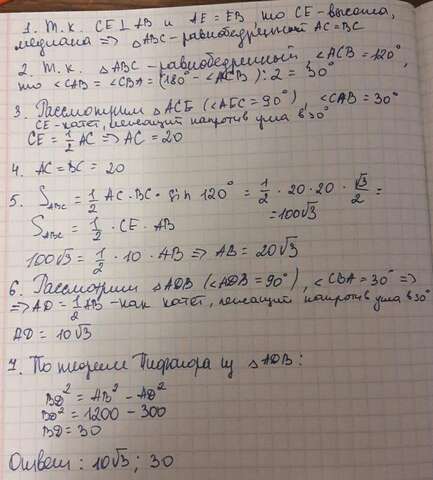 1. Т. к. CE⊥AB и AE = EB то CE - высота,
медиана => △ABC - равнобедренный AC=BC
2. Т. к. △ABC - равнобедренный, <ACB = 120°,
то <CAB = <CBA = (180° - <ACB) : 2 = 30°
3. Рассмотрим △ACE (<AEC = 90°), <CAB = 30°
CE - катет, лежащий напротив угла в 30°
CE = 1/2 AC => AC = 20
4. AC = BC = 20
5. S_ABC = 1/2 AC · BC · sin 120° = 1/2 · 20 · 20 · √3/2 =
= 100√3
S_ABC = 1/2 · CE · AB
100√3 = 1/2 · 10 · AB => AB = 20√3
6. Рассмотрим △ADB (<ADB = 90°), <CBA = 30° =>
=> AD = 1/2 AB - как катет, лежащий напротив угла в 30°
AD = 10√3
7. По теореме Пифагора из △ADB:
BD² = AB² - AD²
BD² = 1200 - 300
BD = 30
Ответ: 10√3; 30